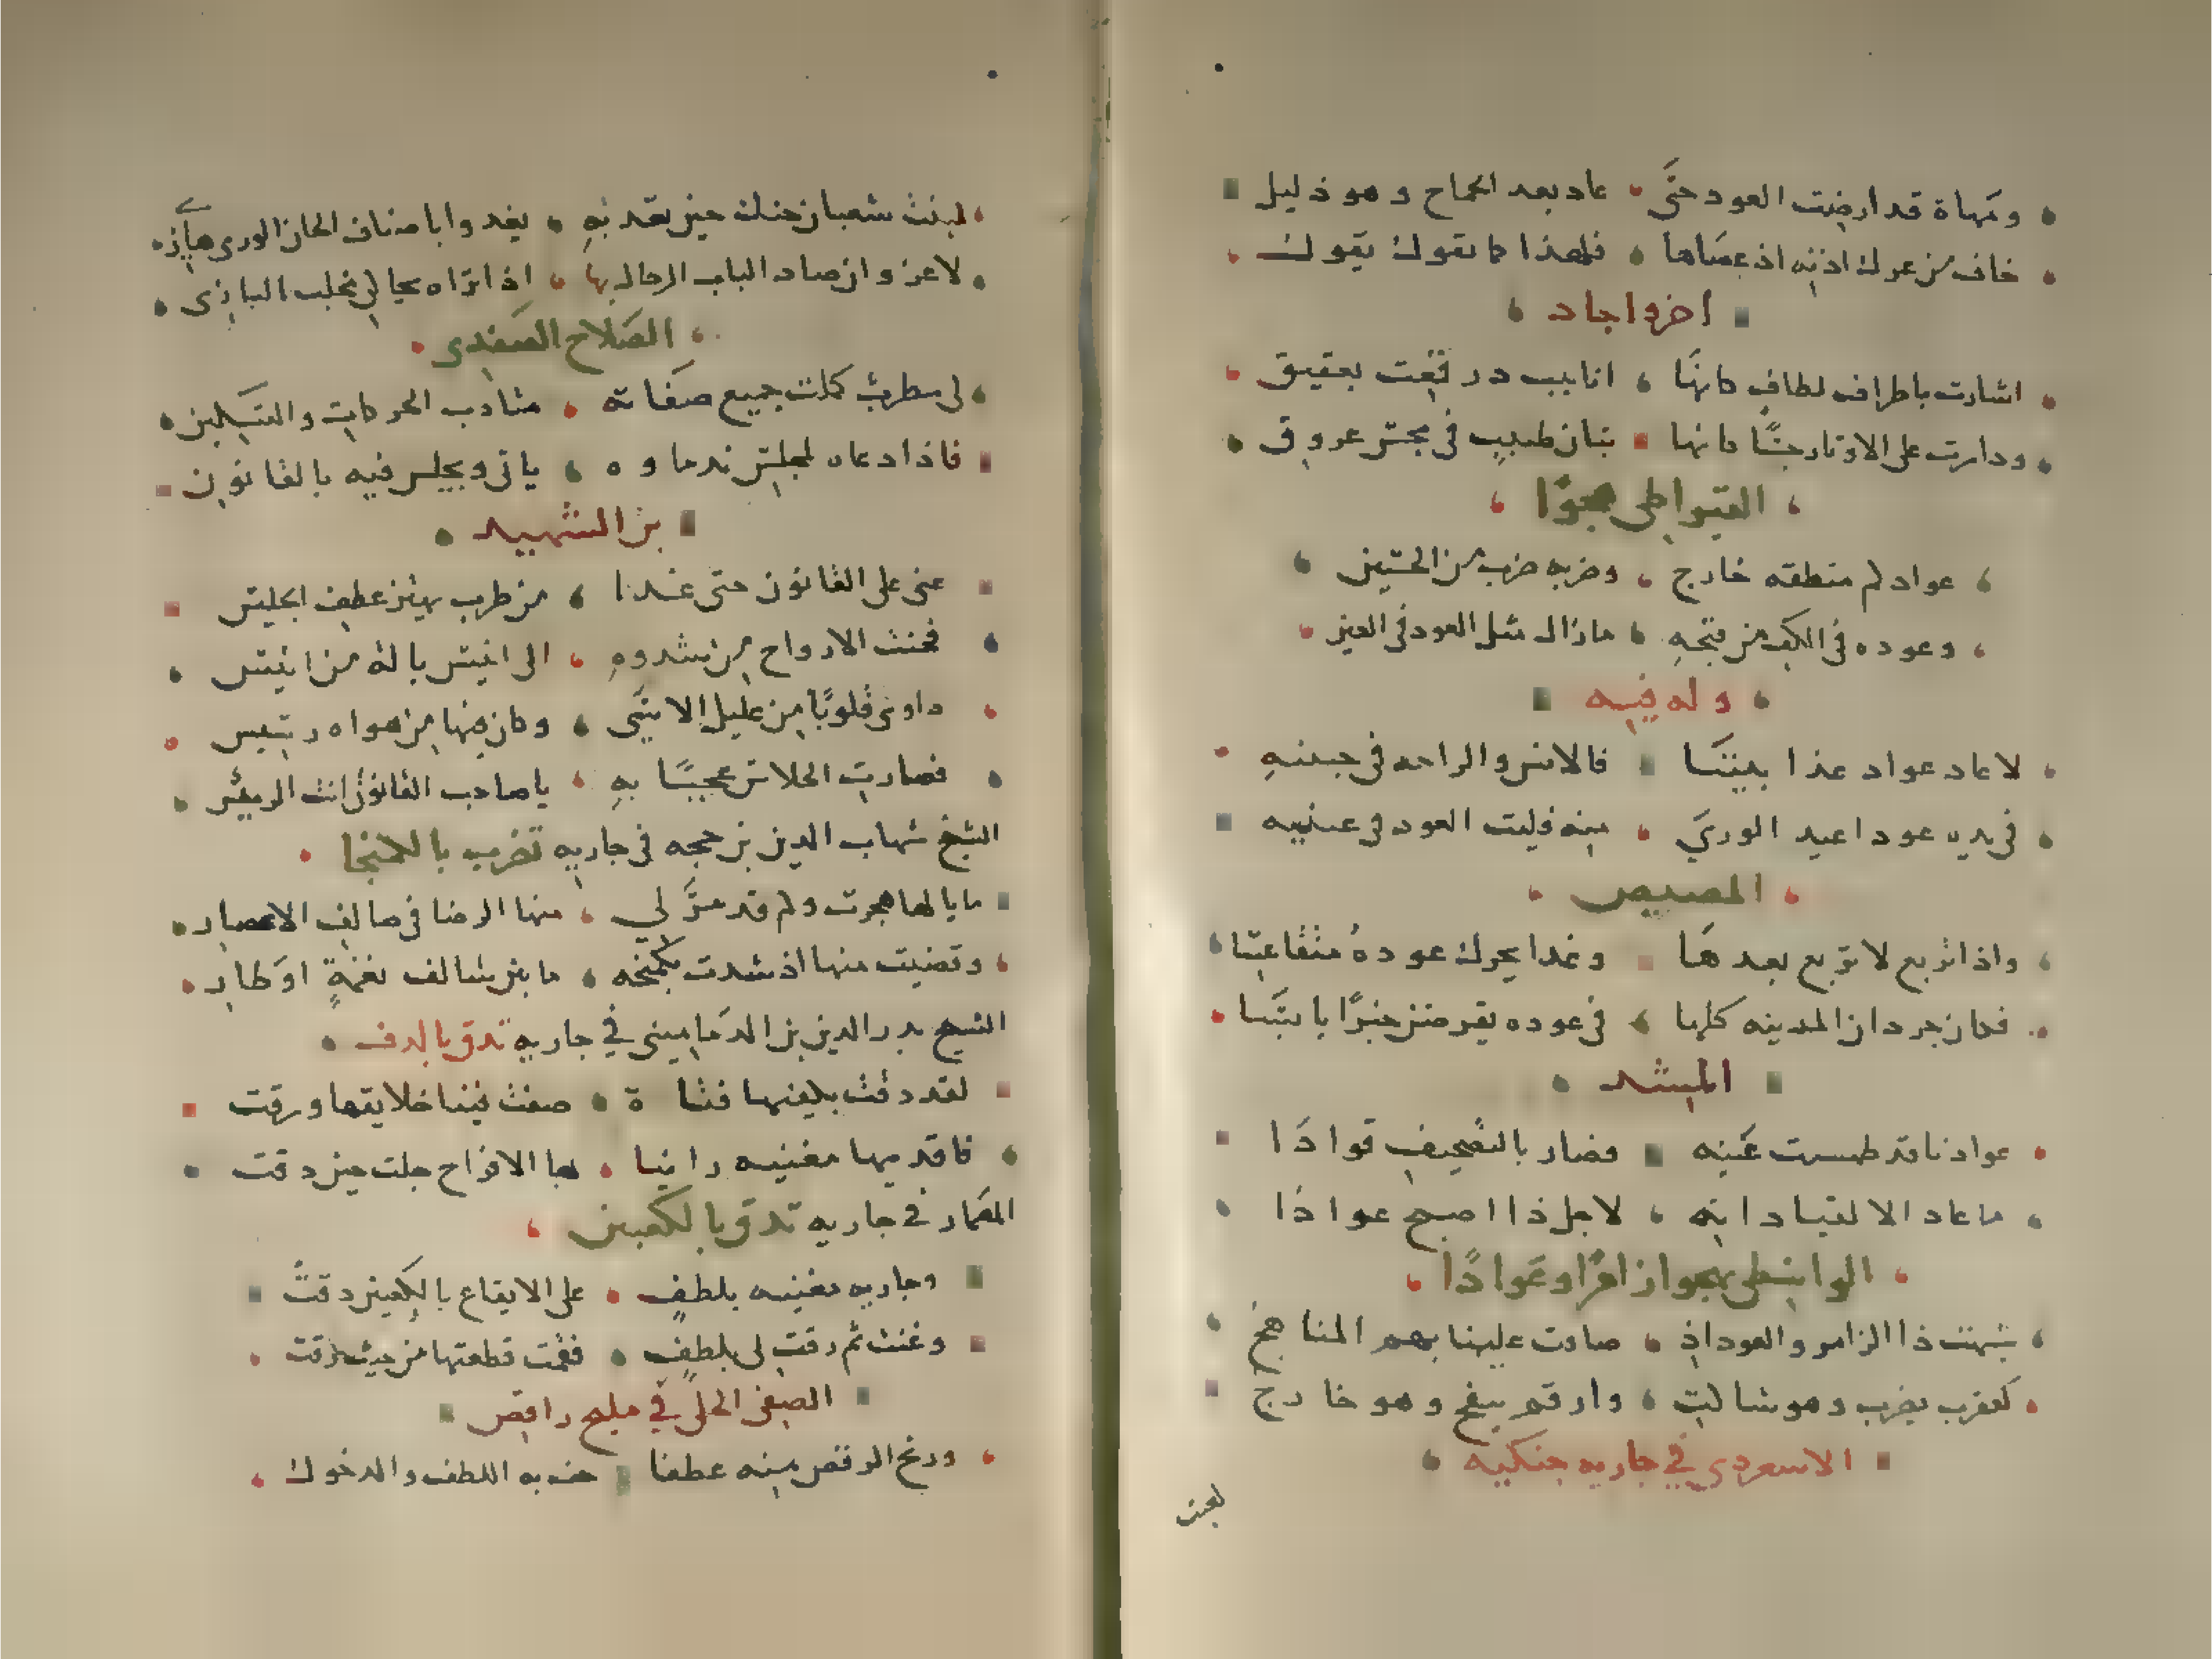 ومهاة قد ارضت العود حتى عاد بعد الجماح وهو ذليل
خاف من عرك اذنه اذ عصاها فلهذا كما تقول يقول
اخر واجاد
اشارت باطراف لطاف كانها انابيب در قمعت بعقيق
ودارت على الاوتار جسًّا كانها بنان طبيب في مجس عروق
القيراطي هجوًا
عواد لم منطقه خارج وضربه ضرب من
وعوده في الكف من قبحه مازال مثل العود في العين
وله فيه
لا عاد عواد غدا بيننا فالانس والراحه في
في يديه عود اعيد الوري منه فليت العود في عينيه
المصيص
واذا تربع لا تربع بعدها وغدا يحرك عوده متقاعسا
فكان جردان المدينه كلها في عوده يقرضن خبزًا يابسا
المشد
عوادنا قد طمست عينه فصار بالتصحيف قوادا
ما عاد الا لقياداته لاجل ذا اصبح عوادا
الواسطي يهجوا زامرًا وعوادًا
شبهت ذا الزامر والعود اذ صاوت علينا بهم المناهج
كعقرب يضرب وهو شالت وارقم ينفخ وهو خارج
الاسعردي في جاريه جنكيه
لعبت
لعبت شعبان جنك حين تقد به يغدوا باصناف الحان الورى هازى
لا غرو ان صاد الباب الرجال بها اذ اتراه يحاكي مخلب البازى
الصلاح الصفدى
لى مطرب كملت جميع صفاته متادب الحركات والتسكين
فاذا دعاه لمجلس ندماوه ياتى ويجلس فيه بالقانون
بن الشهيد
غنى على القانون حتى غدا من طرب يهتز عطف الجليس
فحنت الارواح من شدوه الى انيس باله من انيس
داوى قلوبًا من غليل الاسى وكان فيها من هواه رسيس
فصاحت الجلاس عجبًا به يا صاحب القانون انت الرييس
الشيخ شهاب الدين بن حجه في جاريه تضرب بالكمنجا
ما بالها هجرت وكم قد مر لي منها الرضا في سالف الاعصار
وقضيت منها اذ شدت بكمنجه ما بين سالف نغمةٍ اوطار
الشيخ بدر الدين بن الدماميني في جاريه تدق بالدف
لقد دقت بكفيها فتاة صفت فينا خلايقها ورقت
فاقديها مغنيه رانيا لها الافراح جلت حين دقت
المعمار في جاريه تدق بالكعبين
وجاريه مغنيه بلطف على الايقاع بالكعبين دقت
وغنت ثم رقت لى بلطف فقمت قطعتها من حيث رقت
الصفي الحلي في مليح راقص
ورنح الرقص منه عطفا خف به اللطف والدخول